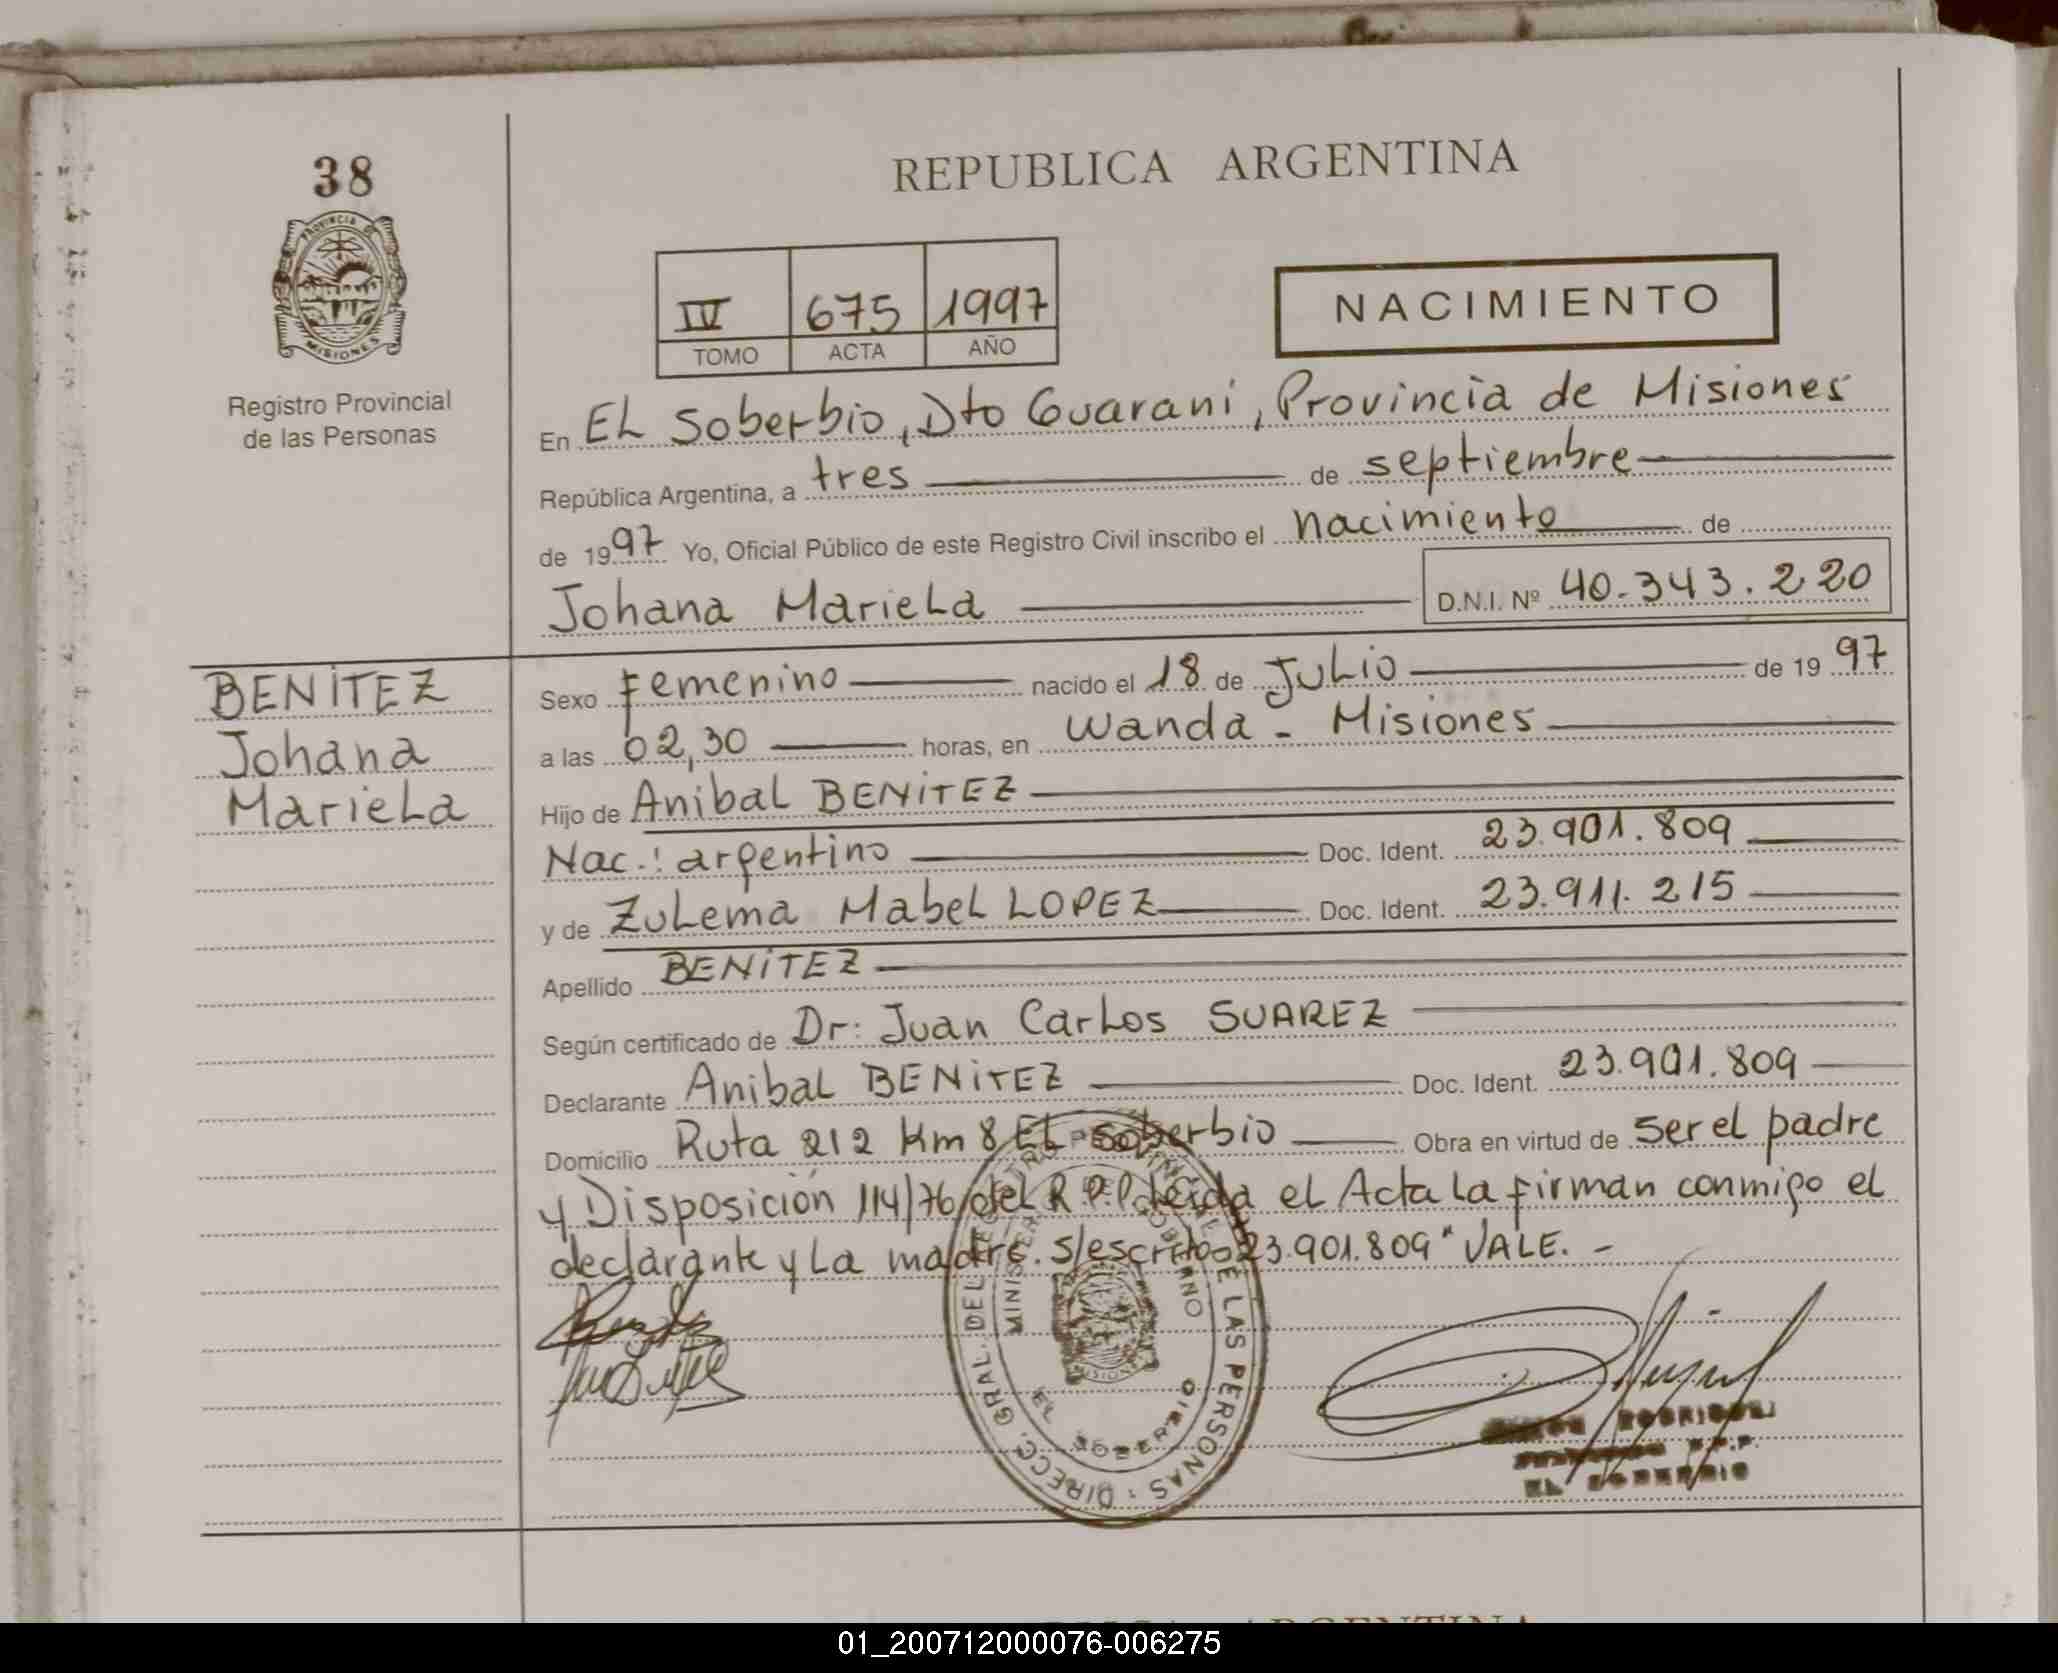 38
PROVINCIA DE
MISIONES
Registro Provincial
de las Personas
REPUBLICA ARGENTINA
IV 675 1997
TOMO ACTA AÑO
NACIMIENTO
En EL Soberbio, Dto Guarani, Provincia de Misiones
República Argentina, a tres de septiembre
de 1997 Yo, Oficial Público de este Registro Civil inscribo el nacimiento de
Johana Mariela D.N.I. Nº 40.343.220
BENITEZ
Johana
Mariela
Sexo Femenino nacido el 18 de Julio de 1997
a las 02,30 horas, en Wanda - Misiones
Hijo de Anibal BENITEZ
Nac.: argentino Doc. Ident. 23.901.809
y de Zulema Mabel LOPEZ Doc. Ident. 23.911.215
Apellido BENITEZ
Según certificado de Dr: Juan Carlos SUAREZ
Declarante Anibal BENITEZ Doc. Ident. 23.901.809
Domicilio Ruta 212 Km 8 EL Soberbio Obra en virtud de ser el padre
y Disposición 114/76 del R.P.P. Leida el Acta la firman conmigo el
declarante y La madre. s/escrito 23.901.809" VALE. -
DIRECC. GRAL. DEL REGISTRO PROVINCIAL DE LAS PERSONAS
MINISTERIO DE GOBIERNO
EL SOBERBIO
MISIONES
RODRIGUEZ
EL SOBERBIO
01_200712000076-006275